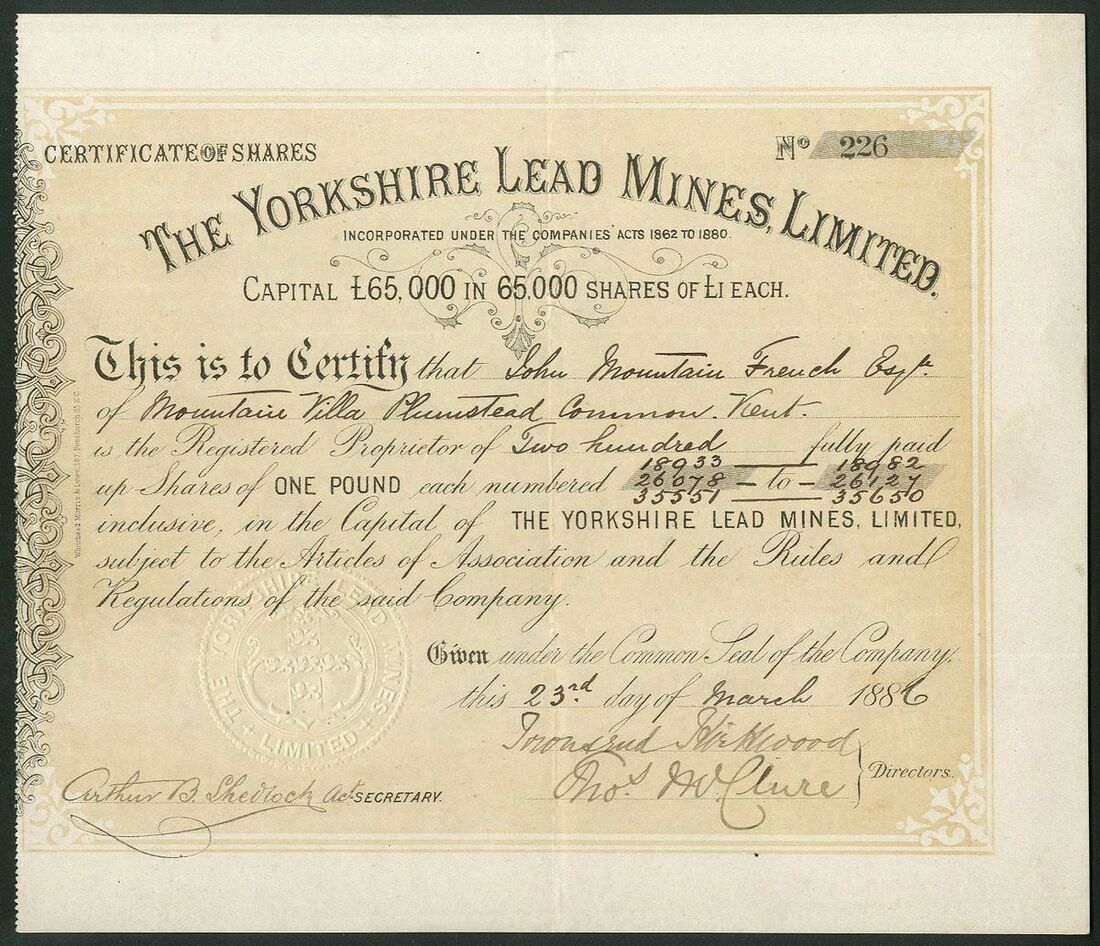 CERTIFICATE OF SHARES
No 226
THE YORKSHIRE LEAD MINES, LIMITED.
INCORPORATED UNDER THE COMPANIES' ACTS 1862 TO 1880.
CAPITAL £65,000 IN 65,000 SHARES OF £1 EACH.
This is to Certify that John Mountain French Esqre
of Mountain Villa Plumstead Common. Kent.
is the Registered Proprietor of Two hundred fully paid
18933 — 18982
up Shares of ONE POUND each numbered 26078 – to – 26127
35551 — 35650
inclusive, in the Capital of THE YORKSHIRE LEAD MINES, LIMITED,
subject to the Articles of Association and the Rules and
Regulations of the said Company.
Given under the Common Seal of the Company,
this 23rd day of March 1886
Townsend Kirkwood
Thos McClure
Directors.
Arthur B. Shedlock Act SECRETARY.
THE YORKSHIRE LEAD MINES LIMITED